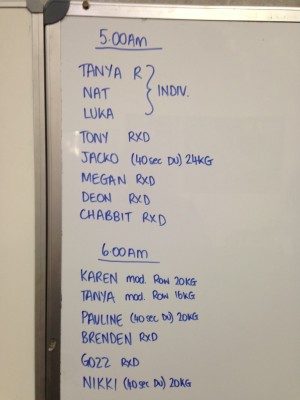 5:00AM
TANYA R
NAT
INDIV.
LUKA
TONY RXD
JACKO (40sec DU) 24KG
MEGAN RXD
DEON RXD
CHABBIT RXD
6:00AM
KAREN mod. Row 20KG
TANYA mod. Row 16KG
PAULINE (40sec DU) 20KG
BRENDEN RXD
GOZZ RXD
NIKKI (40sec DU) 20KG